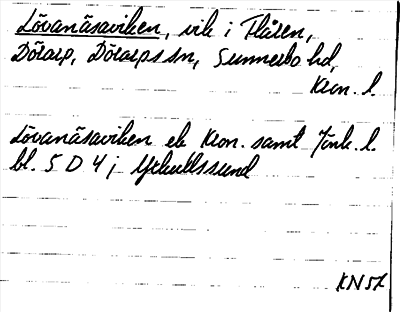 Lövanäsaviken, vik i Flåren,
Dörarp, Dörarps sn, Sunnerbo hd,
Kron. l.
Lövanäsaviken ek Kron. samt Jönk. l.
bl. 5 D 4 j Yxkullssund
KN57